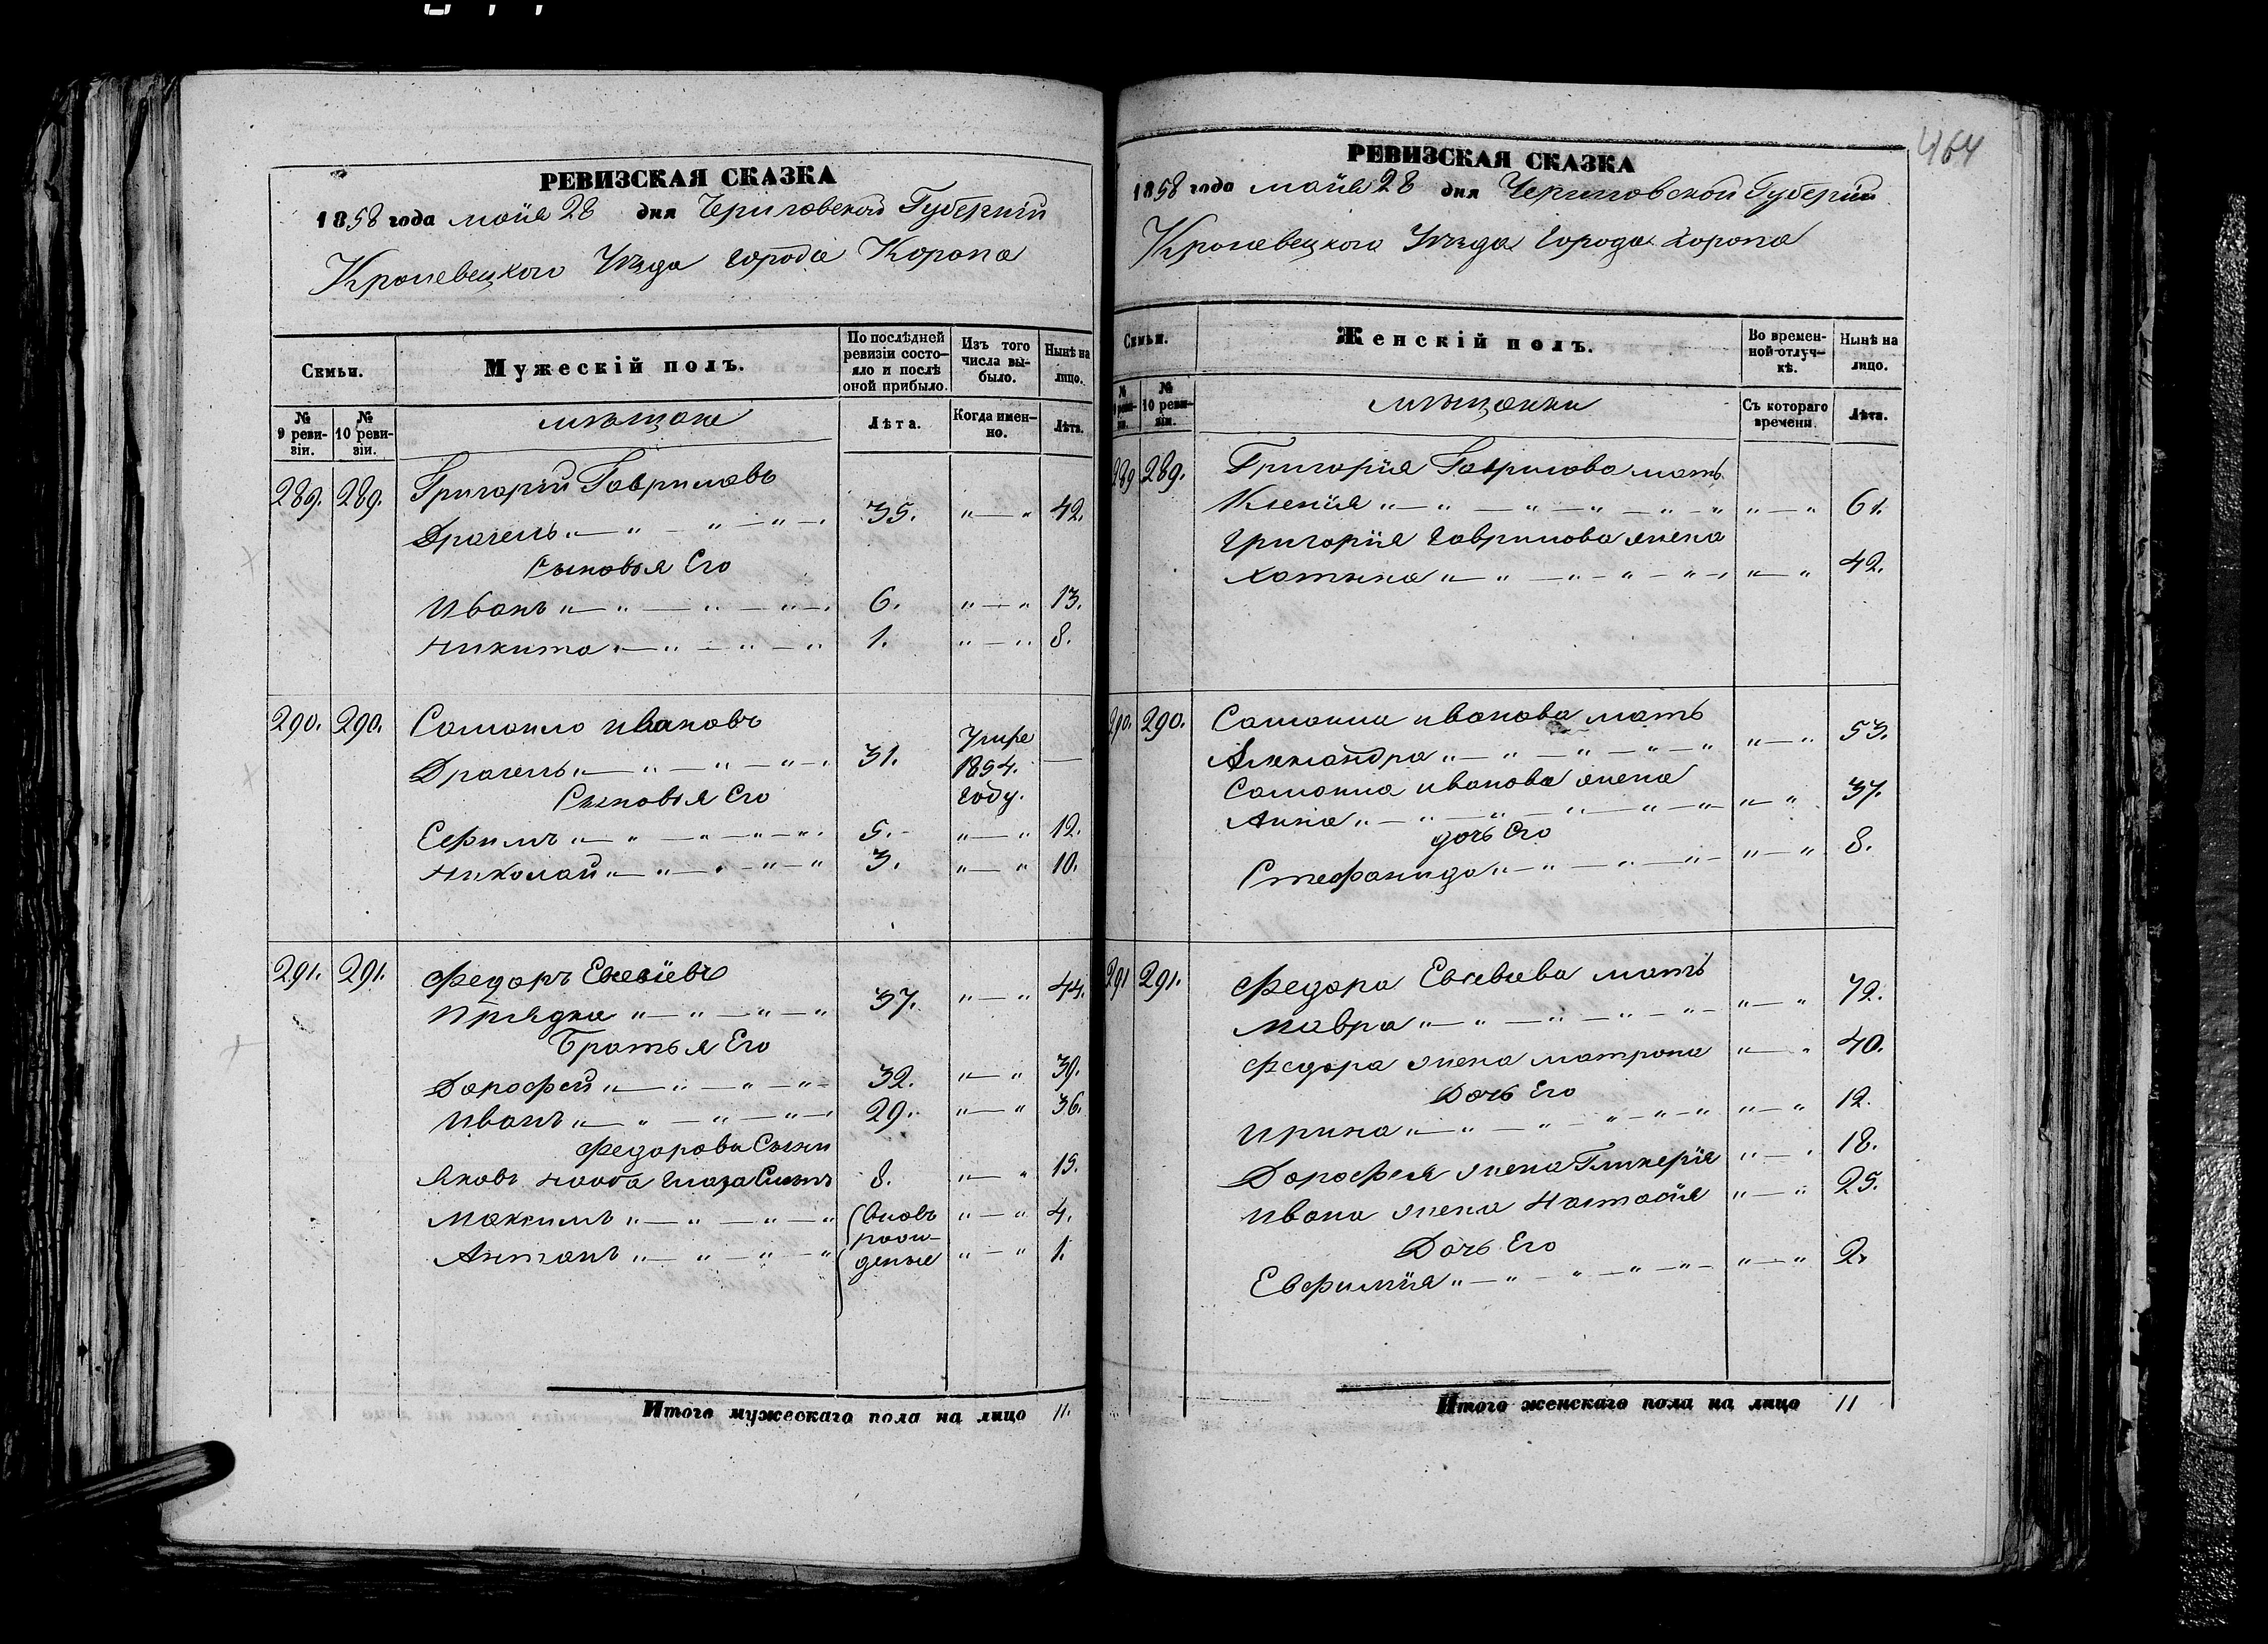 РЕВИЗСКАЯ СКАЗКА
1858 года мѫія 28 дня Черниговской Губерніи
Кролевецкого Уѣзда города Коропа
Семьи.
Мужескій полъ.
По послѣдней ревизіи состояло и послѣ оной прибыло.
Изъ того числа выбыло.
Нынѣ на лицо.
№ 9 ревизіи.
№ 10 ревизіи.
мѣщане
Лѣта.
Когда именно.
Лѣта.
289. 289. Григорій Гавриловъ
Драгель 35. 42.
Сыновья Его
Иванъ 6. 13.
Никита 1. 8.
290. 290. Самоило Ивановъ
Драгель 31. Умре 1854. году.
Сыновья Его
Ефимъ 5. 12.
Николай 3. 10.
291. 291. Федоръ Евсевіевъ
Прядка 37. 44.
Братья Его
Дорофей 32. 39.
Иванъ 29. 36.
Федорова Сыни
Яковъ 8. 15.
Максимъ 4.
Антонъ 1.
Вновь рожденые
Итого мужескаго пола на лицо 11.
464
РЕВИЗСКАЯ СКАЗКА
1858 года маія 28 дня Черниговской Губерніи
Кролевецкого Уѣзда Города Коропа
Семьи.
Женскій полъ.
Во временной отлучкѣ.
Нынѣ на лицо.
№ 9 ревизіи.
№ 10 ревизіи.
мѣщанки
Съ котораго времени.
Лѣта.
289 289. Григорія Гаврилова мать
Ксенія 61.
Григорія Гаврилова жена
Хотына 42.
290. 290. Самоила Иванова мать
Александра 53.
Самоила Иванова жена
Анна 37.
дочь Его
Стефанида 8.
291 291. Федора Евсевіева мать
Мавра 72.
Федора жена Матрона 40.
Дочь Его
Ирина 12.
Дорофея жена Гликерія 18.
Ивана жена Настасія 25.
Дочь Его
Евфимія 2.
Итого женскаго пола на лицо 11